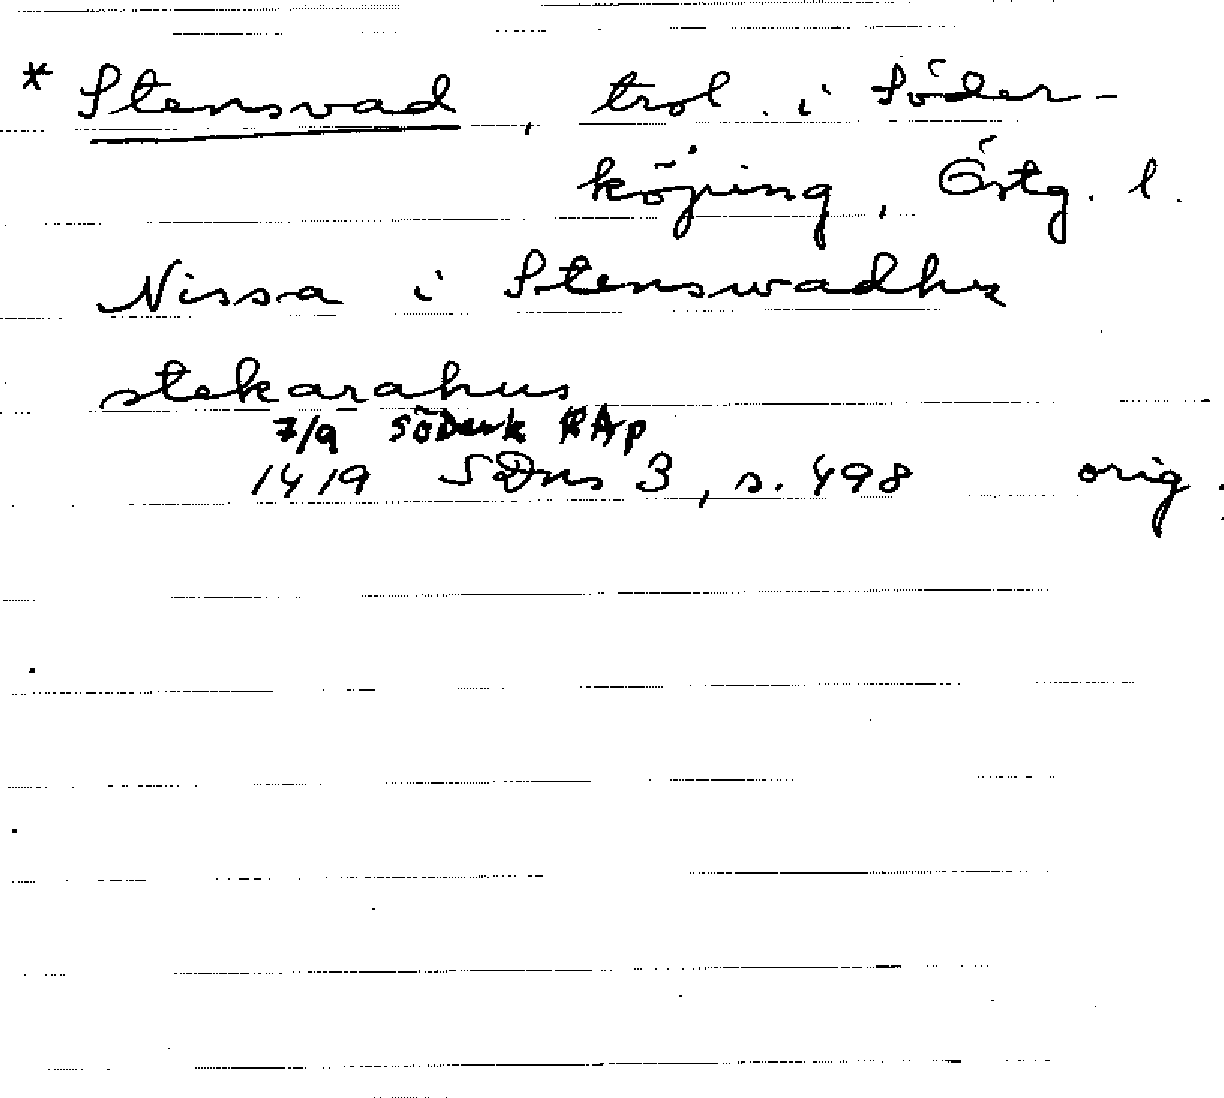 * Stensvad, trol. i Söder-
köping, Östg. l.
Nissa i Stenswadhz
stekarahus
7/9 söderk RAp
1419 SDns 3, s. 498 orig.